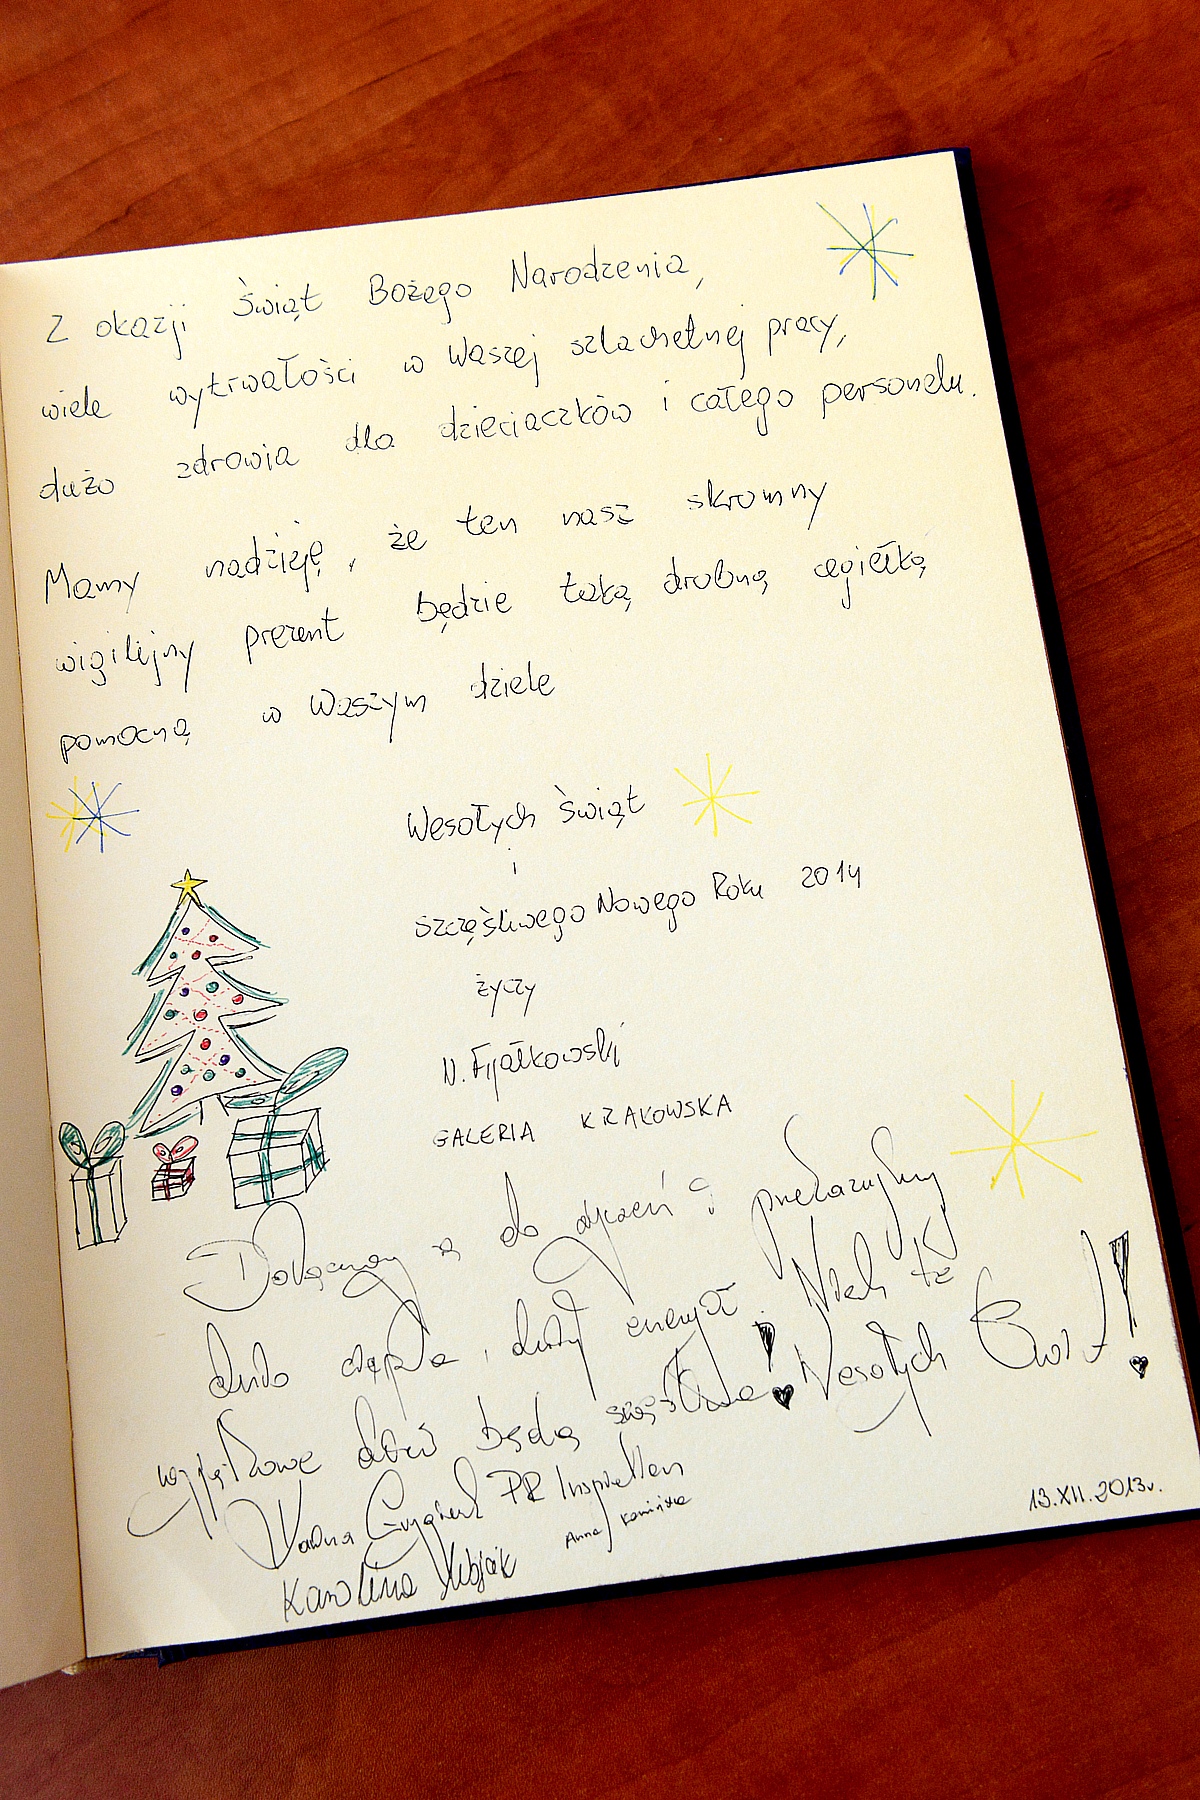 Z okazji Świąt Bożego Narodzenia,
wiele wytrwałości w Waszej szlachetnej pracy,
dużo zdrowia dla dzieciaczków i całego personelu.
Mamy nadzieję, że ten nasz skromny
wigilijny prezent będzie taką drobną cegiełką
pomocną w Waszym dziele
Wesołych Świąt
i
szczęśliwego Nowego Roku 2014
życzy
N. Fijałkowski
GALERIA KRAKOWSKA
Dołączamy się do życzeń i przekazujemy
dużo ciepła, dużo energii. Niech te
wyjątkowe dni będą szczęśliwe! Wesołych Świąt!
PR Inspiration
Anna Kamińska
Karolina Kubjak
13.XII.2013r.